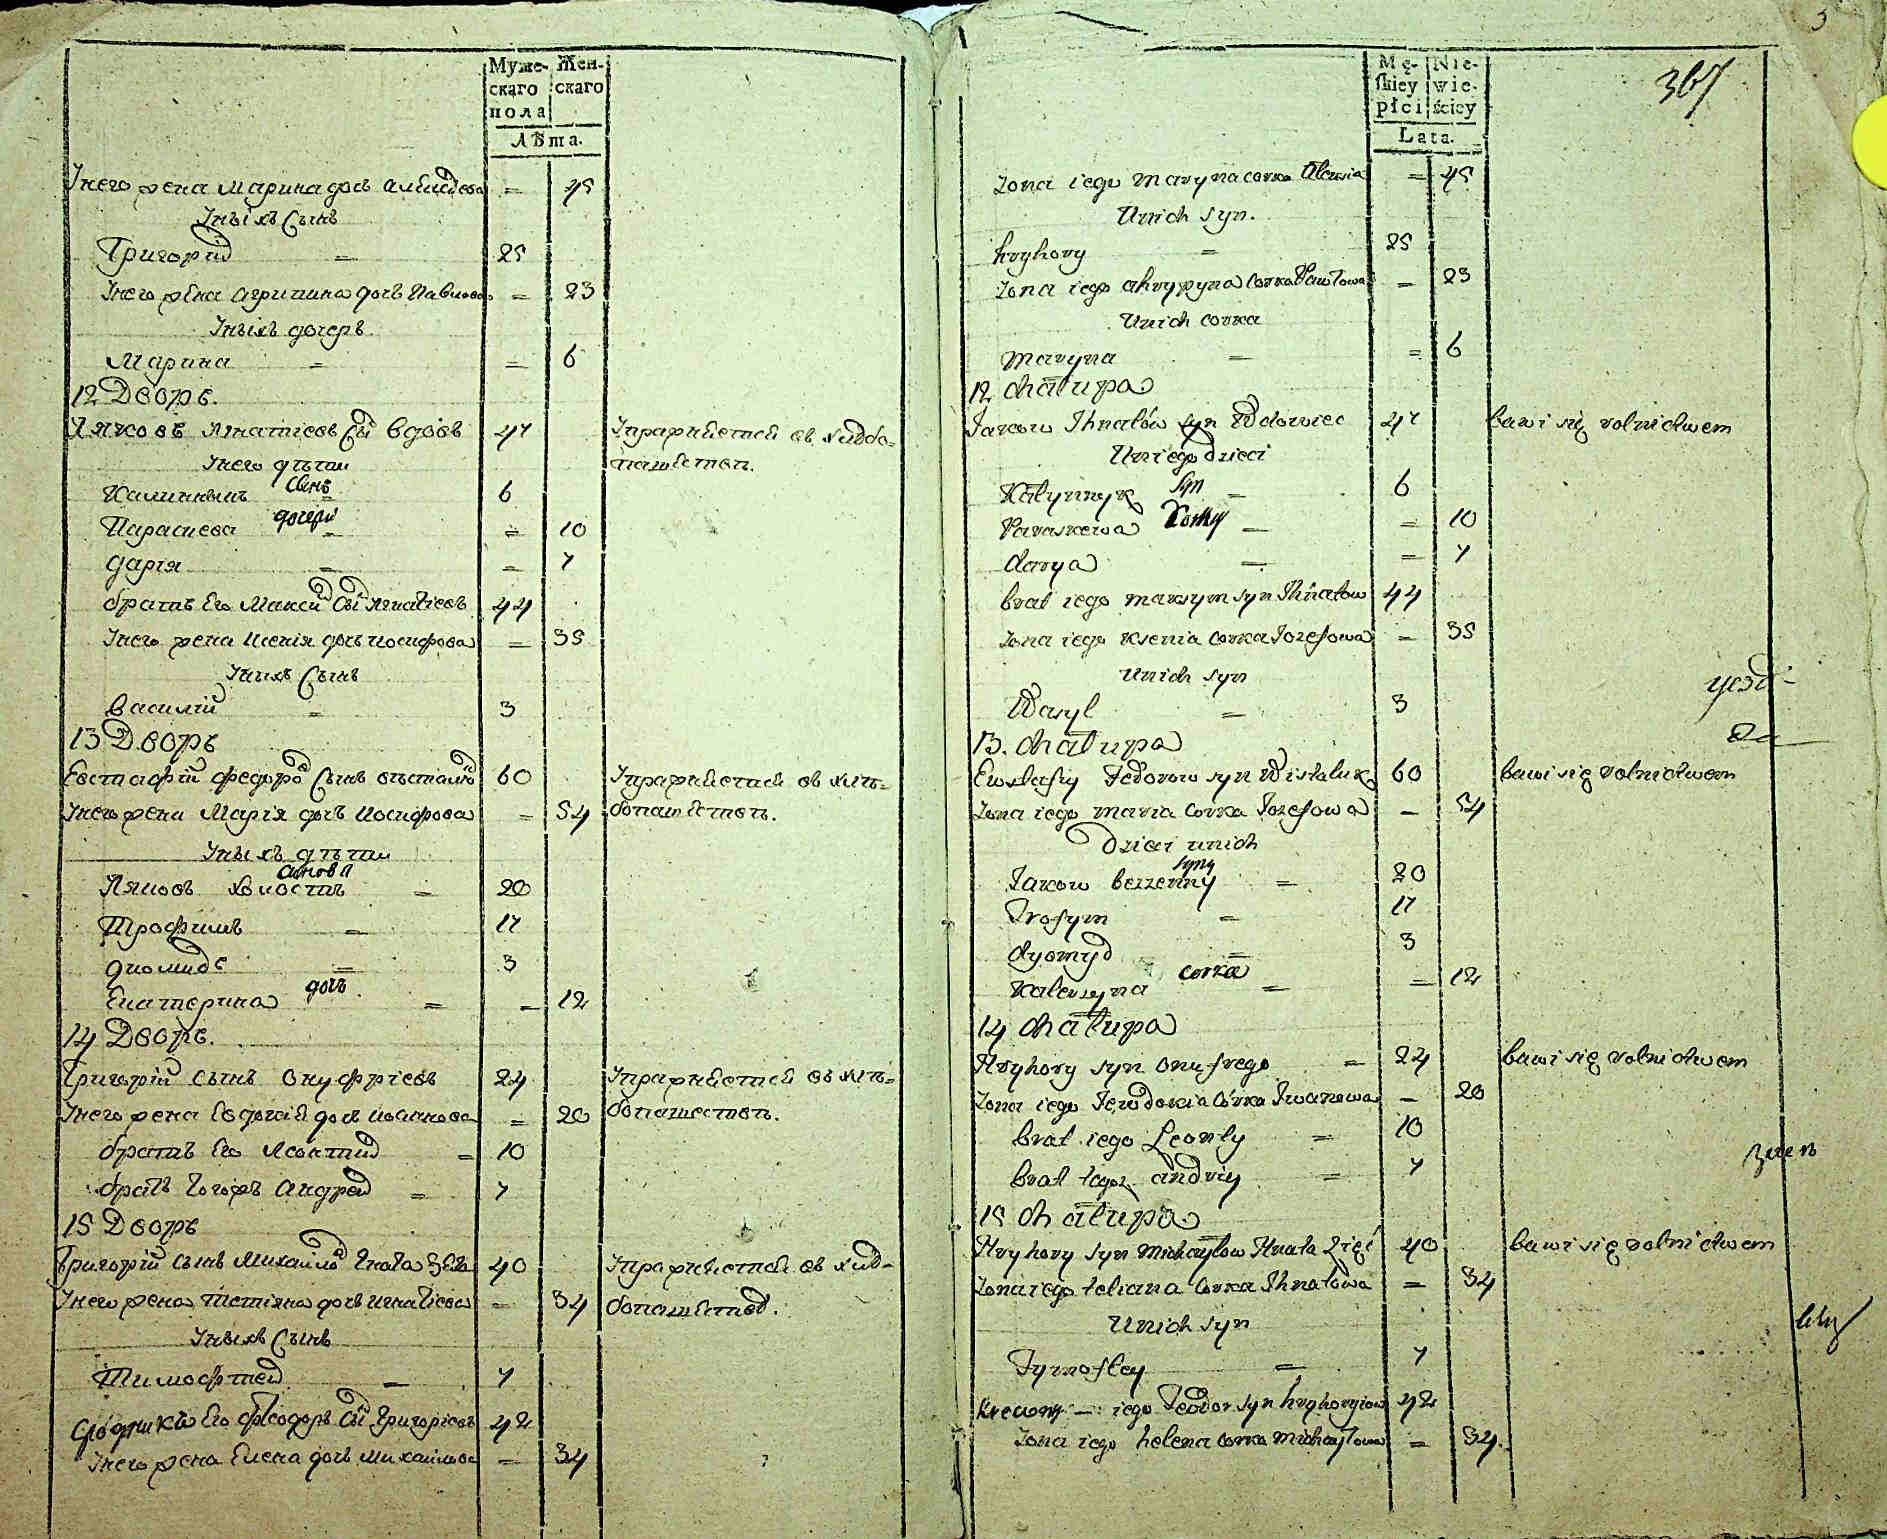 Муже-
скаго
пола
Жен-
скаго
Лѣта.
Унего жена Марина дочь 45
Уныхъ Сынъ
Григорий = 25
Унего жена Агрипина дочь Павлова = 23
Уныхъ дочерь
Марина = = 6
12 Дворъ.
Яковъ Игнатіевъ Сы вдовъ 47 Упражняется въ хлѣбо-
пашествѣ.
Унего дѣти
сынъ
6
дочери
Параскева = 10
Дарія = 7
братъ Его Максимъ Сы Игнатіевъ 44
Унего жена Ксенія дочь Иосифова = 35
Уныхъ Сынъ
Василій = 3
13 Дворъ
Евстафій Федоровъ Сынъ 60 Упражняется въ хлѣ-
Унего жена Марія дочь Иосифова = 54 бопашествѣ.
Уныхъ дѣти
синовя
Яковъ холостъ = 20
Трофимъ = 17
Диомидъ = 3
дочь
Екатерина = = 12
14 Дворъ.
Григорій сынъ Онуфріевъ 24 Упражняется въ хлѣ-
Унего жена Евдокія дочь Иоаннова = 20 бопашествѣ.
братъ Его Леонтий = 10
братъ Тогожъ Андрей = 7
15 Дворъ
Григорій сынъ Михайловъ Гната Зять 40 Упражняется въ хлѣ-
Унего жена Татіяна дочь Игнатіева = 34 бопашествѣ.
Уныхъ Сынъ
Тимофтей = 7
сродникъ Его Феодоръ Сы Григоріевъ 42
Унего жена Елена дочь Михайлова = 34
3
367
Mę-
skiey
płci
Nie-
wie-
ściey
Lata.
Zona iego Maryna corka Alexia = 45
Unich syn.
hryhory = 25
Zona iego ahrypyna Corka Pawłowa = 23
Unich corka
Maryna = = 6
12 chałupa
Jakow Ihnatów syn Wdowiec 47 bawi się rolnictwem
Uniego dzieci
Syn
Kałynnyk = 6
Corky
Paraskewa = = 10
darya = = 7
brat iego Maxym syn Ihnatow 44
Zona iego Ksenia Corka Jozefowa = 35
Unich syn
Wasyl = 3
13. chałupa
Ewstafiy Fedorow syn 60 bawi się rolnictwem
Zona iego Maria Corka Jozefowa = 54
Dzieci unich
syny
Jakow bezzenny = 20
Trofym = 17
dyomyd = 3
corka
Kateryna = = 12
14 chałupa
Hryhory syn Onufrego = 24 bawi się rolnictwem
Zona iego Jewdokia Córka Jwanowa = 20
brat iego Leonty = 10
brat tegoz andriy = 7
15 chałupa
Hryhory syn Michayłow Hnata Zięć 40 bawi się rolnictwem
Zona iego tetiana Corka Ihnatowa = 34
Unich syn
Tymoftey = 7
Krewny — iego Feodor syn hryhoryiow 42
Zona iego helena corka Michayłowa = 34.